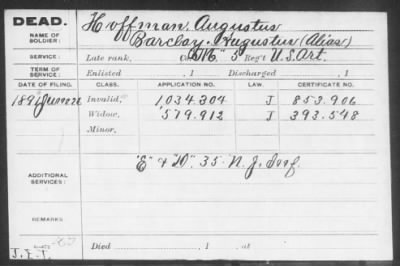 DEAD. Hoffman, Augustus
NAME OF SOLDIER: Barclay, Augustus (Alias)
SERVICE: Late rank, Co. "M" 5 Reg't U.S. Art.
TERM OF SERVICE: Enlisted , 1 Discharged , 1
DATE OF FILING. CLASS. APPLICATION NO. LAW. CERTIFICATE NO.
1891 June 22 Invalid, 1,034.304 J 853.906
Widow, 579.912 J 393.548
Minor,
ADDITIONAL SERVICES: "E" & "D", 35 N.J. Inf.
REMARKS:
Died , 1 , at